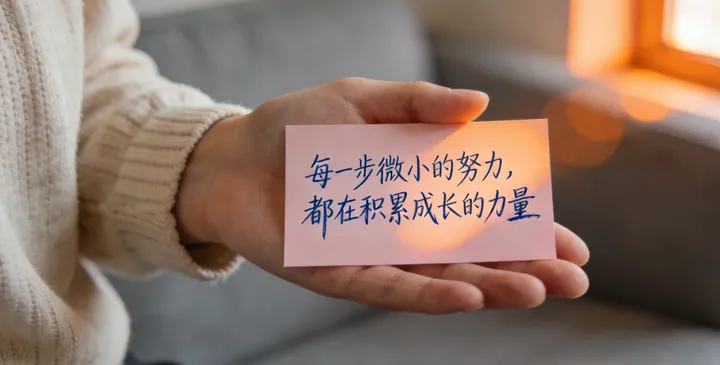 每一步微小的努力，
都在积累成长的力量